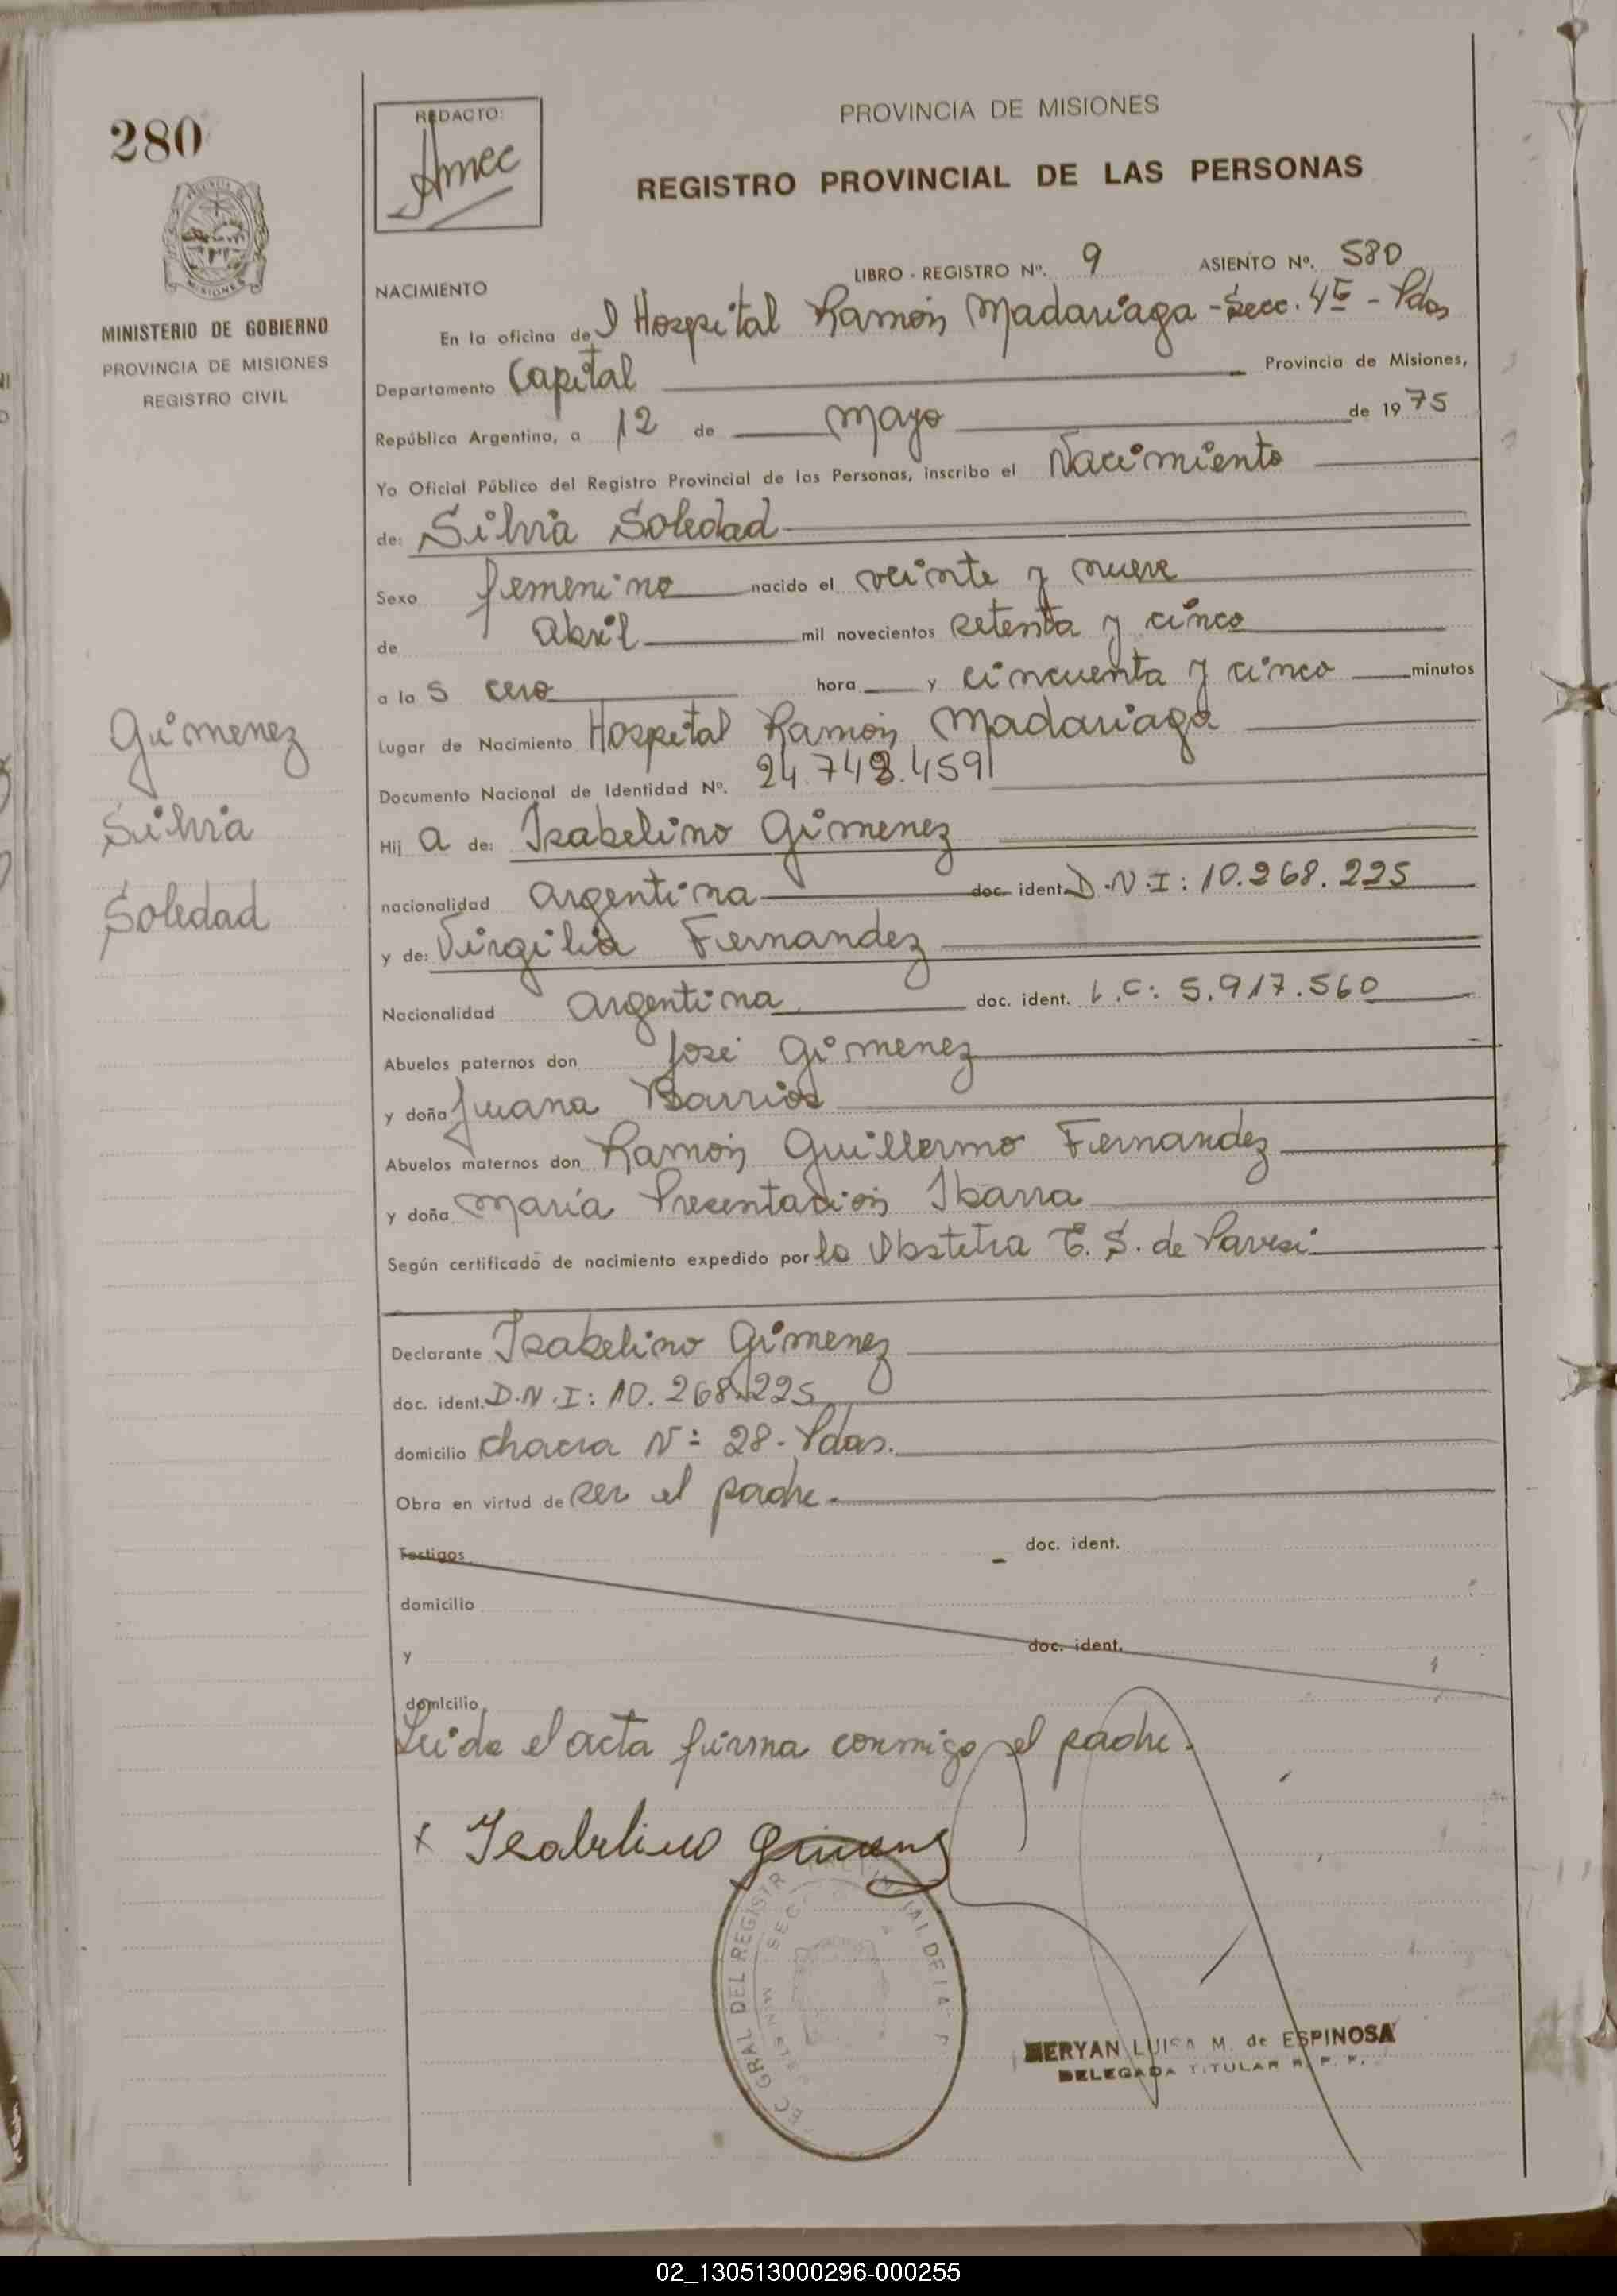 280
REDACTO:
PROVINCIA DE MISIONES
REGISTRO PROVINCIAL DE LAS PERSONAS
MINISTERIO DE GOBIERNO
PROVINCIA DE MISIONES
REGISTRO CIVIL
LIBRO - REGISTRO Nº. 9 ASIENTO Nº. 580
NACIMIENTO
En la oficina de l Hospital Ramón Madariaga - Secc. 4ª - Pdas
Departamento Capital Provincia de Misiones,
República Argentina, a 12 de Mayo de 1975
Yo Oficial Público del Registro Provincial de las Personas, inscribo el Nacimiento
de: Silvia Soledad
Sexo femenino nacido el veinte y nueve
de Abril mil novecientos setenta y cinco
a la s cero hora y cincuenta y cinco minutos
Lugar de Nacimiento Hospital Ramón Madariaga
Documento Nacional de Identidad Nº. 24.748.459
Hij a de: Isabelino Gimenez
nacionalidad argentina doc. ident. D.N.I: 10.268.225
y de: Virgilia Fernandez
Nacionalidad argentina doc. ident. L.C: 5.917.560
Abuelos paternos don José Gimenez
y doña Juana Barrios
Abuelos maternos don Ramón Guillermo Fernandez
y doña María Presentación Ibarra
Según certificado de nacimiento expedido por la Obstetra E. S. de Pavesi
Declarante Isabelino Gimenez
doc. ident. D.N.I: 10.268.225
domicilio chacra Nº 28 - Pdas.
Obra en virtud de ser el padre.
Testigos doc. ident.
domicilio
y doc. ident.
domicilio
Leida el acta firma conmigo el padre.
x Isabelino Gimenez
Gimenez
Silvia
Soledad
GRAL DEL REGISTR
MERYAN LUISA M. de ESPINOSA
DELEGADA TITULAR R. P. P.
02_130513000296-000255